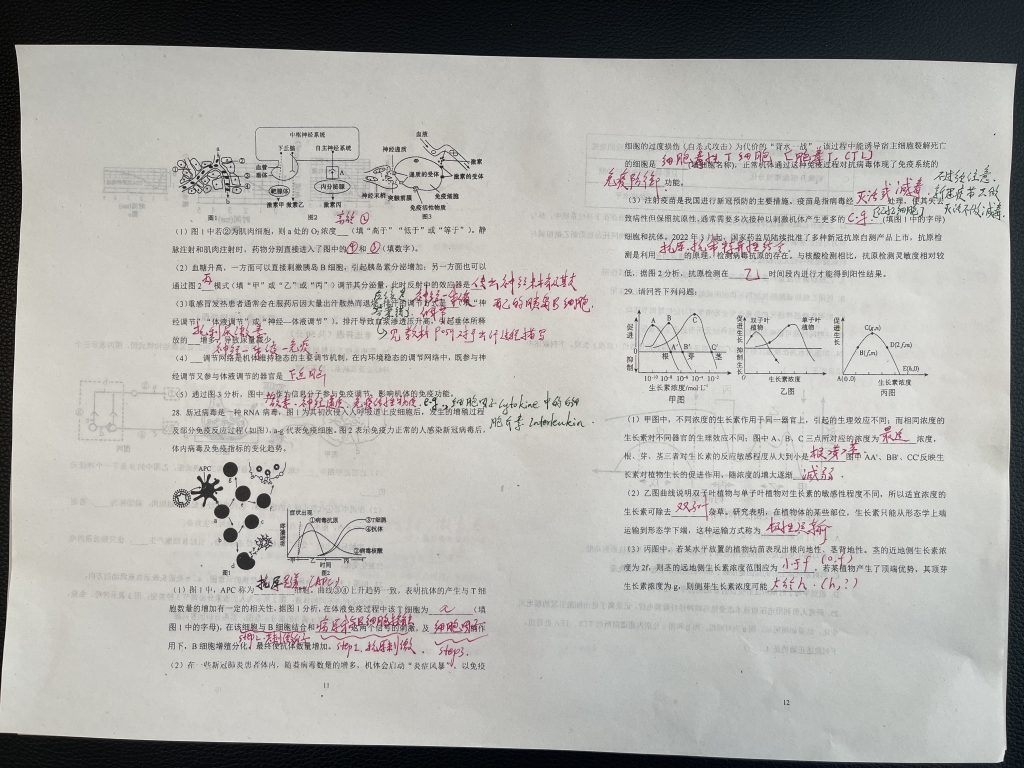 中枢神经系统
下丘脑 自主神经系统
血管
垂体
A
靶腺体 内分泌腺
激素甲 激素乙 激素丙
图1 图2
血液
神经递质 激素
递质的受体 激素的受体
神经末梢 突触前膜 免疫细胞
免疫活性物质
图3
(1) 图 1 中若②为肌肉细胞，则 a 处的 O₂浓度 （填“高于”“低于”或“等于”）。静
脉注射和肌肉注射时，药物分别直接进入了图中的 ④ 和 ③ (填数字)。
(2) 血糖升高，一方面可以直接刺激胰岛 B 细胞，引起胰岛素分泌增加；另一方面也可以
通过图 2 丙 模式（填“甲”或“乙”或“丙”）调节其分泌量，此时反射中的效应器是 传出神经末梢及其支
配的胰岛B细胞.
(3)重感冒发热患者通常会在服药后因大量出汗散热而退烧，
经调节”“体液调节”或“神经—体液调节”）。排汗导致血浆渗透压升高，引起垂体所释
放的 增多，导致尿量减少。
抗利尿激素
神经-体液-免疫
(4) 调节网络是机体维持稳态的主要调节机制，在内环境稳态的调节网络中，既参与神
经调节又参与体液调节的器官是 下丘脑
(5) 通过图 3 分析，图中 作为信息分子参与免疫调节，影响机体的免疫功能。
激素、神经递质、免疫活性物质. e.g. 细胞因子 cytokine 中的白细
胞介素 Interleukin.
28. 新冠病毒是一种 RNA 病毒，图 1 为其初次侵入人呼吸道上皮细胞后，发生的增殖过程
及部分免疫反应过程（如图），a-g 代表免疫细胞。图 2 表示免疫力正常的人感染新冠病毒后，
体内病毒及免疫指标的变化趋势。
APC
症状出现
①病毒抗原
③T细胞
④抗体
②病毒核酸
甲 乙 丙
时间
图1 图2
(1) 图 1 中，APC 称为 抗原呈递(APC) 细胞，曲线③④上升趋势一致，表明抗体的产生与 T 细
胞数量的增加有一定的相关性。据图 1 分析，在体液免疫过程中该 T 细胞为 a （填
图 1 中的字母)，在该细胞与 B 细胞结合和 病原体与B细胞接触 这两个信号的刺激，及 细胞因子 作
用下，B 细胞增殖分化，最终使抗体数量增加。 step1. 抗原刺激. step3.
(2) 在一些新冠肺炎患者体内，随着病毒数量的增多，机体会启动“炎症风暴”，以免疫
11
细胞的过度损伤（自杀式攻击）为代价的“背水一战”。该过程中能诱导宿主细胞裂解死亡
的细胞是 细胞毒性T细胞 [胞毒T, CTL] （细胞名称)，正常机体通过这种免疫过程对抗病毒体现了免疫系统的
免疫防御 功能。
(3) 注射疫苗是我国进行新冠预防的主要措施，疫苗是指病毒经 灭活或减毒 处理，使其失去
不过注意：
新冠疫苗只做
灭活不做减毒.
致病性但保留抗原性。通常需要多次接种以刺激机体产生更多的 c.手 (填图 1 中的字母)
(记忆细胞)
细胞和抗体。2022 年 3 月起，国家药监局陆续批准了多种新冠抗原自测产品上市，抗原检
抗原-抗体特异性结合
测是利用 的原理，检测病毒抗原的存在。与核酸检测相比，抗原检测灵敏度相对较
低，据图 2 分析，抗原检测在 乙 时间段内进行才能得到阳性结果。
29. 请回答下列问题：
促进
抑制
A B C
A' B' C'
根 芽 茎
10⁻¹⁰ 10⁻⁸ 10⁻⁶ 10⁻⁴ 10⁻²
生长素浓度/mol·L⁻¹
甲图
促进生长
抑制生长
双子叶植物 单子叶植物
生长素浓度
乙图
促进生长
C(g,n)
B(f,m) D(2f,m)
A(0,0) E(h,0)
生长素浓度
丙图
(1) 甲图中，不同浓度的生长素作用于同一器官上，引起的生理效应不同；而相同浓度的
生长素对不同器官的生理效应不同；图中 A、B、C 三点所对应的浓度为 最适 浓度，
根、芽、茎三者对生长素的反应敏感程度从大到小是 根>芽>茎. 图中 AA'、BB'、CC'反映生
长素对植物生长的促进作用，随浓度的增大逐渐 减弱.
(2) 乙图曲线说明双子叶植物与单子叶植物对生长素的敏感性程度不同，所以适宜浓度的
生长素可除去 双子叶 杂草。研究表明，在植物体的某些部位，生长素只能从形态学上端
运输到形态学下端，这种运输方式称为 极性运输
(3) 丙图中，若某水平放置的植物幼苗表现出根向地性、茎背地性。茎的近地侧生长素浓
度为 2f，则茎的远地侧生长素浓度范围应为 小于f (0,f) 。若某植物产生了顶端优势，其顶芽
生长素浓度为 g，则侧芽生长素浓度可能 大于h. (h,?)
12